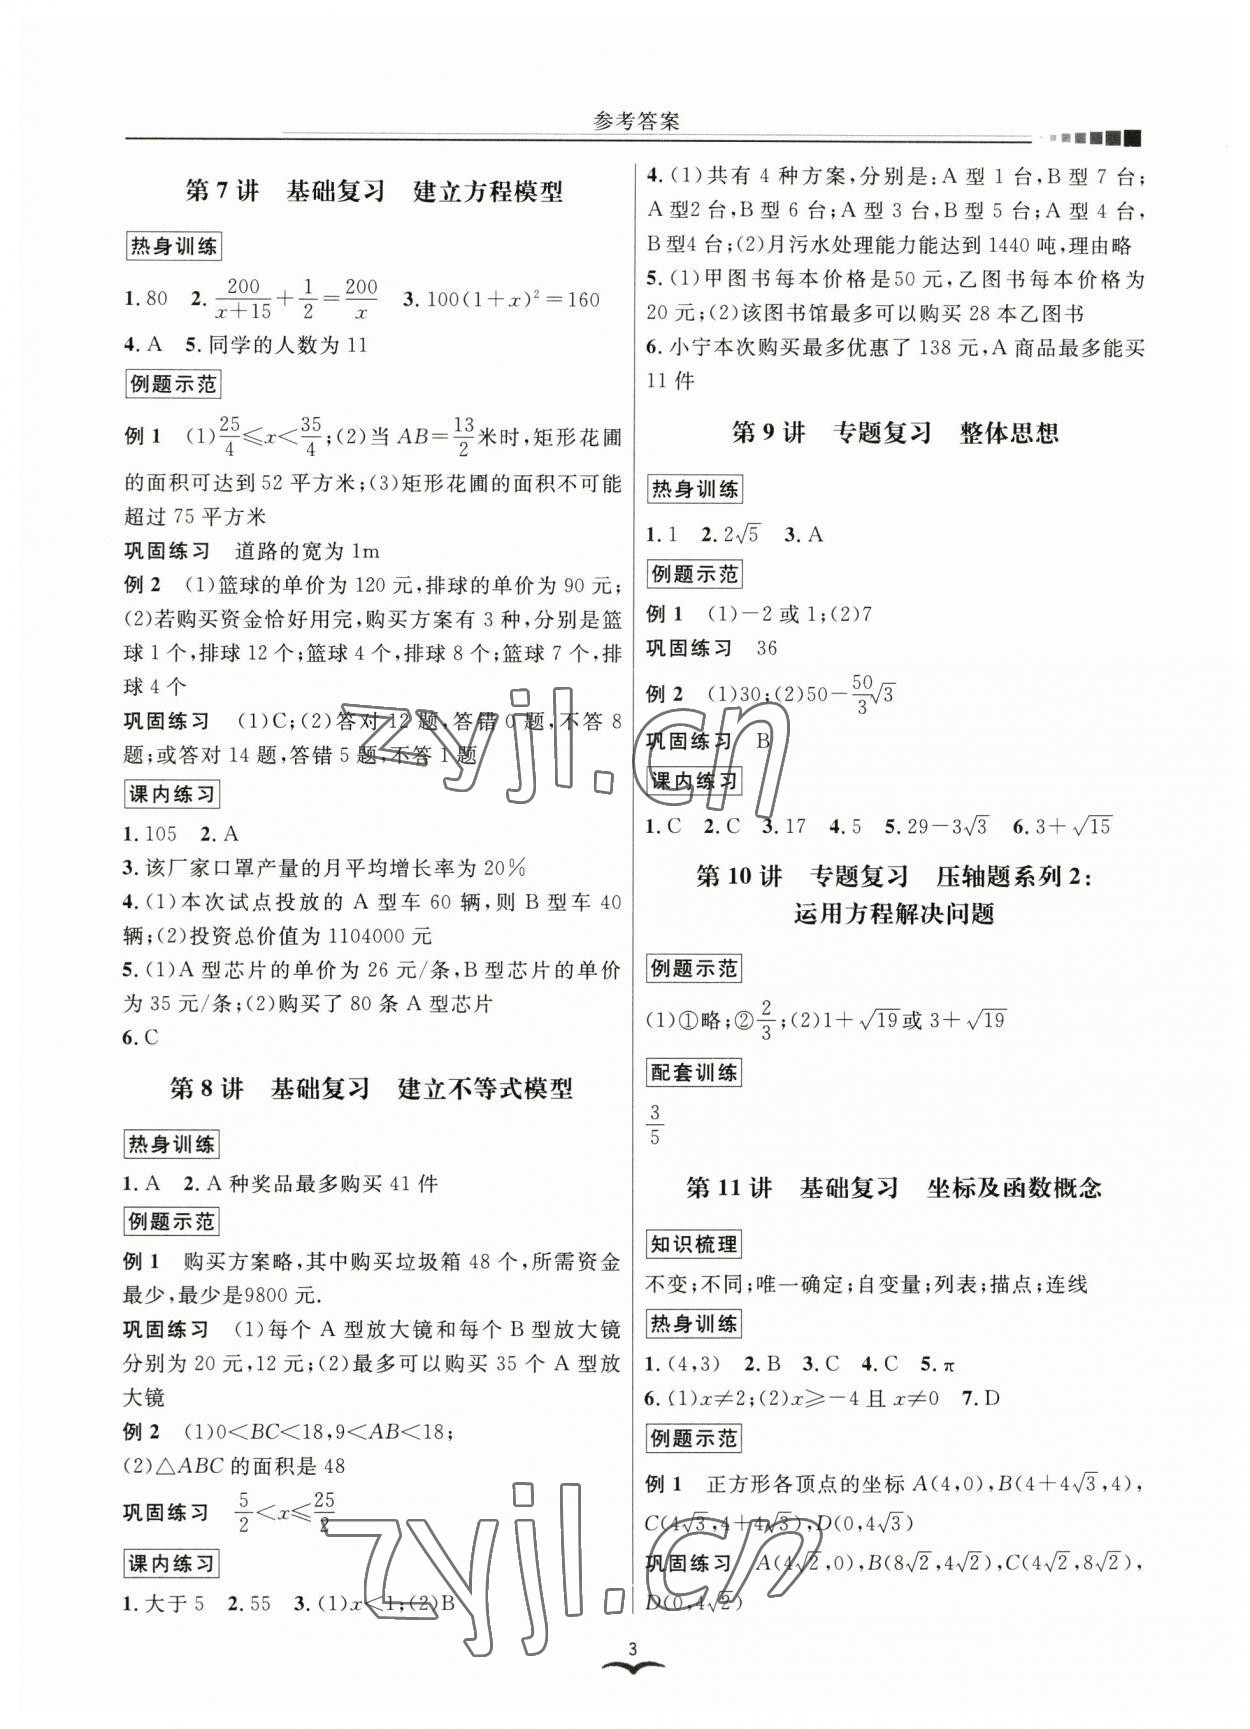 参考答案
第 7 讲 基础复习 建立方程模型
热身训练
1. 80 2. 200/(x+15)+1/2=200/x 3. 100(1+x)²=160
4. A 5. 同学的人数为 11
例题示范
例 1 (1)25/4≤x<35/4;(2)当 AB=13/2米时,矩形花圃
的面积可达到 52 平方米;(3)矩形花圃的面积不可能
超过 75 平方米
巩固练习 道路的宽为 1m
例 2 (1)篮球的单价为 120 元,排球的单价为 90 元;
(2)若购买资金恰好用完,购买方案有 3 种,分别是篮
球 1 个,排球 12 个;篮球 4 个,排球 8 个;篮球 7 个,排
球 4 个
巩固练习 (1)C;(2)答对 12 题,答错 0 题,不答 8
题;或答对 14 题,答错 5 题,不答 1 题
课内练习
1. 105 2. A
3. 该厂家口罩产量的月平均增长率为 20%
4. (1)本次试点投放的 A 型车 60 辆,则 B 型车 40
辆;(2)投资总价值为 1104000 元
5. (1)A 型芯片的单价为 26 元/条,B 型芯片的单价
为 35 元/条;(2)购买了 80 条 A 型芯片
6. C
第 8 讲 基础复习 建立不等式模型
热身训练
1. A 2. A 种奖品最多购买 41 件
例题示范
例 1 购买方案略,其中购买垃圾箱 48 个,所需资金
最少,最少是9800 元.
巩固练习 (1)每个 A 型放大镜和每个 B 型放大镜
分别为 20 元,12 元;(2)最多可以购买 35 个 A 型放
大镜
例 2 (1)0<BC<18,9<AB<18;
(2)△ABC 的面积是 48
巩固练习 5/2<x≤25/2
课内练习
1. 大于 5 2. 55 3. (1)x<1;(2)B
4. (1)共有 4 种方案,分别是:A 型 1 台,B 型 7 台;
A 型2 台,B 型 6 台;A 型 3 台,B 型 5 台;A 型 4 台,
B 型4 台;(2)月污水处理能力能达到 1440 吨,理由略
5. (1)甲图书每本价格是50 元,乙图书每本价格为
20 元;(2)该图书馆最多可以购买 28 本乙图书
6. 小宁本次购买最多优惠了 138 元,A 商品最多能买
11 件
第 9 讲 专题复习 整体思想
热身训练
1. 1 2. 2√5 3. A
例题示范
例 1 (1)-2 或 1;(2)7
巩固练习 36
例 2 (1)30;(2)50-50/3√3
巩固练习 B
课内练习
1. C 2. C 3. 17 4. 5 5. 29-3√3 6. 3+√15
第 10 讲 专题复习 压轴题系列 2:
运用方程解决问题
例题示范
(1)①略;②2/3;(2)1+√19或 3+√19
配套训练
3/5
第 11 讲 基础复习 坐标及函数概念
知识梳理
不变;不同;唯一确定;自变量;列表;描点;连线
热身训练
1. (4,3) 2. B 3. C 4. C 5. π
6. (1)x≠2;(2)x≥-4 且 x≠0 7. D
例题示范
例 1 正方形各顶点的坐标 A(4,0),B(4+4√3,4),
C(4√3,4+4√3),D(0,4√3)
巩固练习 A(4√2,0),B(8√2,4√2),C(4√2,8√2),
D(0,4√2)
zyjl.cn
zyjl.cn
3